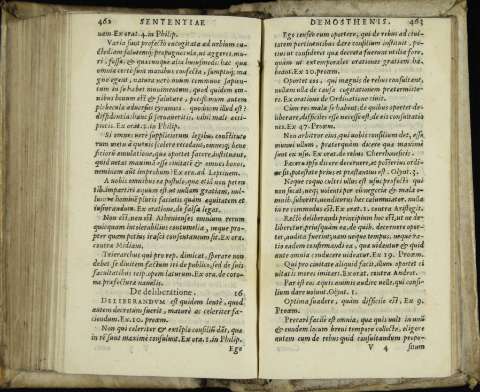 462 SENTENTIAE
uam Exorat. 4. in Philip.
Varia sunt profecto excogitata ad urbium cu-
stodiam salutemq; propugnacula, ut aggeres, mu-
ri, fossæ, & quæcunque alia huiusmodi: hæc qua
omnia certè sunt manibus confecta, sumptuq; ma-
gno egent, natura uerò unum commune sapien-
tum in se habet munimentum, quod quidem om-
nibus bonum est & salutare, potissimum autem
plebecula aduersus tyrannos. quodnam illud est?
diffidentia. hanc si seruaueritis, nihil mali acci-
pietis. Ex orat. 2. in Philip.
Si omnes metu suppliciorum legibus constituto-
rum metu à quouis scelere recedant, omnesq; bene
ficiorum æmulatione, quæ oportet facere, instituant,
quid uetat maximā esse ciuitatē & omnes bonos,
neminem autē improbum? Ex ora. ad Leptinem.
A nobis omnibus ea postulo, quæ etiā non peten
tib. impartiri æquum est: ut nullam gratiam, nul-
lumue hominē pluris faciatis quàm æquitatem et
iusiurandum. Ex oratione, de falsa legat.
Non est, non est Athenienses omnium rerum
quicquam intolerabilius contumelia, neque pro-
pter quam potius irasci conueniat. Ex ora.
contra Midiam.
Trierarchus qui pro rep. dimicat, sperare non
debet se ditiorem factum iri de publico, sed de suis
facultatibus reip. opem laturum. Ex ora. de coro-
na præfecturæ naualis.
De deliberatione. 16.
DELIBERANDVM est quidem lentè, quod
autem decretum fuerit, maturè ac celeriter fa-
ciendum. Ex. 10. proæm.
Non qui celeriter & ex tēplo consiliū dāt, quæ
in rē sunt maximè consulunt. Ex ora. 1. in Philip.
Ego
DEMOSTHENIS. 463
Ego censeo eum oportere, qui de rebus ad ciui-
tatem pertinentibus dare consilium instituit, po-
tius ut conferant quæ decreta fuerunt uelle fore,
quàm ut extemporales orationes gratiam ha-
beant. Ex 20. proæm.
Oportet eos, qui magnis de rebus consultant,
nullam ulla de causa cogitationem prætermitte-
re. Ex oratione de Ordinatione ciuit.
Cùm res male se habent, de quibus oportet de-
liberare, difficiles esse necesse est, de eis consultatio
nes. Ex 47. Proæm.
Non arbitror eius, qui uobis consilium det, esse
muneri ullum, præterquàm dicere quæ maximè
sunt ex usu. Ex orat. de rebus Cherrhonesicis.
Facere ipsum dicere decreuere, et posterius ordi-
ne sit, potestate prius et præstantius est. Olynt. 3.
Neque coquo cultri ullus est usus profecto qui
non secant, neq; uoluntatis per omnegotia & malo o-
mnib. sufferēti, conditores hoc noceat uiolator. nulla
in re commodus est. Ex orat. 1. contra Aristogit.
Rectè deliberandi principium hoc est, ut ne de-
liberetur, priusquàm ea, de quib. decernere opor-
tet, audita fuerint: nam neque tempus. neque ra-
tio eadem confirmandi ea, quæ uidentur & quid
ante omnia conducere uideatur. Ex 19. Proæm.
Qui pro ciuitate aliquid facit, illum oportet ci
uitatis mores imitari. Ex orat. contra Androt.
Par est ea. æquis animis audire uelle, qui consi-
lium dare uolunt. Olynt. 1.
Optima suadere, quàm difficile est, Ex 9.
Proæm.
Precari facile est omnia, quæ quis uult in unū
& eundem locum breui tempore collecta, eligere
autem cum de rebus quid consultandum propo-
V 4 situm